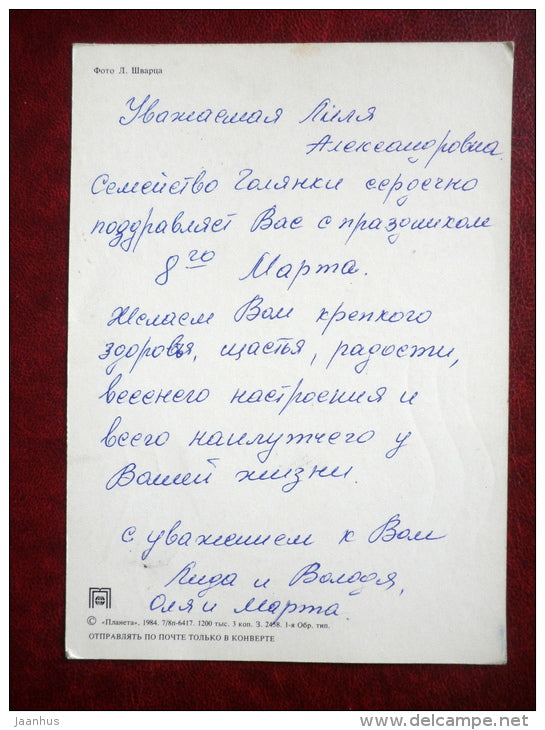 Фото Л. Шварца
Уважаемая Лиля
Александровна
Семейство Голянки сердечно
поздравляет Вас с праздником
8го Марта.
Желаем Вам крепкого
здоровья, щастья, радости,
весеннего настроения и
всего наилутчего у
Вашей жизни.
С уважением к Вам
Лида и Володя,
Оля и Марта.
© «Планета», 1984. 7/8п-6417. 1200 тыс. 3 коп. З. 2458. 1-я Обр. тип.
ОТПРАВЛЯТЬ ПО ПОЧТЕ ТОЛЬКО В КОНВЕРТЕ
jaanhus
www.delcampe.net